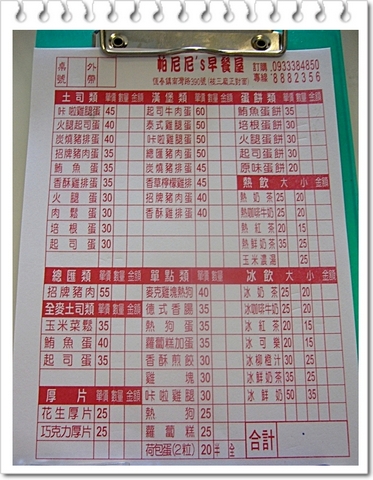 桌號 外帶
帕尼尼's早餐屋
訂購專線 0933384850
8882356
恆春鎮南灣路390號(核三廠正對面)
土司類 單價 數量 金額
咔啦雞腿蛋 45
火腿起司蛋 40
炭燒豬排蛋 40
招牌豬肉蛋 35
鮪魚蛋 35
香酥雞排蛋 35
火腿蛋 30
肉鬆蛋 30
培根蛋 30
起司蛋 30
漢堡類 單價 數量 金額
起司牛肉蛋 60
泰式雞腿蛋 50
咔啦雞腿蛋 50
總匯豬肉蛋 50
炭燒豬排蛋 45
香草檸檬雞排 45
招牌豬肉蛋 40
香酥雞排蛋 40
蛋餅類 單價 數量 金額
鮪魚蛋餅 35
培根蛋餅 30
火腿蛋餅 30
起司蛋餅 30
原味蛋餅 20
熱飲 大 小 金額
熱奶茶 25 20
熱咖啡牛奶 25 20
熱紅茶 20 15
熱鮮奶茶 35 25
玉米濃湯 25
總匯類 單價 數量 金額
招牌豬肉 55
全麥土司類 單價 數量 金額
玉米菜鬆 35
鮪魚蛋 40
起司蛋 35
厚片 單價 數量 金額
花生厚片 25
巧克力厚片 25
單點類 單價 數量 金額
麥克雞塊熱狗 40
德式香腸 35
熱狗蛋 35
蘿蔔糕加蛋 35
香酥煎餃 30
雞塊 30
咔啦雞腿 30
熱狗 25
蘿蔔糕 25
荷包蛋(2粒) 20 半 全
冰飲 大 小 金額
冰奶茶 25 20
冰咖啡牛奶 25 20
冰紅茶 20 15
冰可樂 20 15
冰柳橙汁 30 25
冰鮮奶茶 35 25
冰鮮奶 50 35
合計